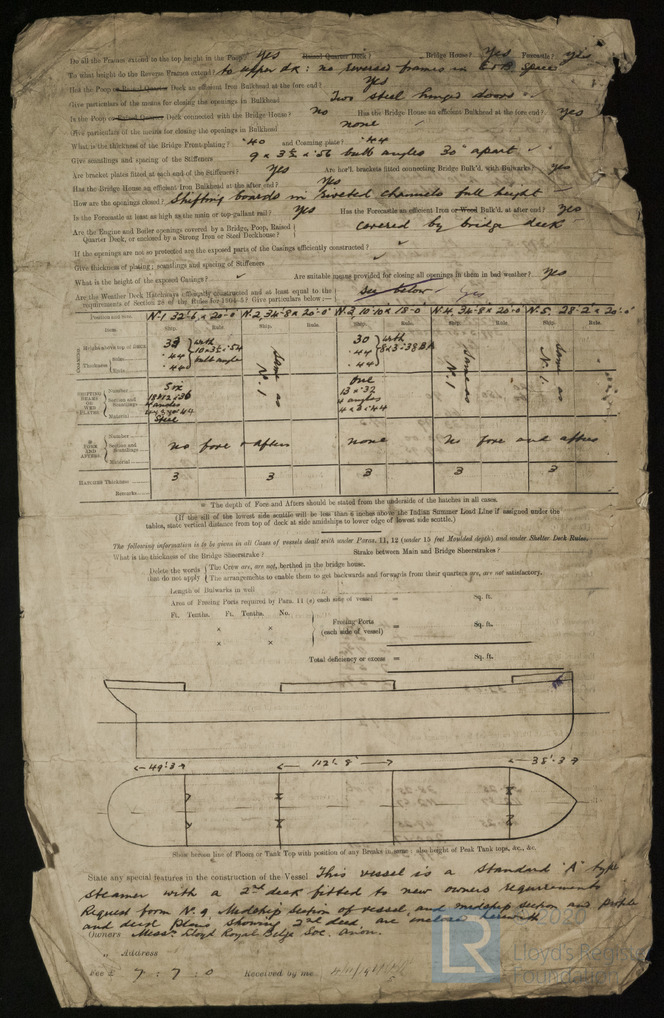 Do all the Frames extend to the top height in the Poop? Yes Raised Quarter Deck? Bridge House? Yes Forecastle? yes
To what height do the Reverse Frames extend? to upper dk: no reversed frames in E & B space
Has the Poop or Raised Quarter Deck an efficient Iron Bulkhead at the fore end? Yes
Give particulars of the means for closing the openings in Bulkhead Two steel hinged doors
Is the Poop or Raised Quarter Deck connected with the Bridge House? no Has the Bridge House an efficient Bulkhead at the fore end? yes
Give particulars of the means for closing the openings in Bulkhead none
What is the thickness of the Bridge Front plating? .40 and Coaming plate? .44
Give scantlings and spacing of the Stiffeners 9 x 3½ x .56 bulb angles 30" apart
Are bracket plates fitted at each end of the Stiffeners? Yes Are hor'l. brackets fitted connecting Bridge Bulk'd. with Bulwarks? yes
Has the Bridge House an efficient Iron Bulkhead at the after end? Yes
How are the openings closed? Shifting boards in riveted channels full height
Is the Forecastle at least as high as the main or top-gallant rail? Yes Has the Forecastle an efficient Iron or Wood Bulk'd. at after end? yes
Are the Engine and Boiler openings covered by a Bridge, Poop, Raised
Quarter Deck, or enclosed by a Strong Iron or Steel Deckhouse? covered by bridge deck
If the openings are not so protected are the exposed parts of the Casings efficiently constructed?
Give thickness of plating; scantlings and spacing of Stiffeners
What is the height of the exposed Casings? Are suitable means provided for closing all openings in them in bad weather? yes
Are the Weather Deck Hatchways efficiently constructed and at least equal to the
requirements of Section 28 of the Rules for 1904-5? Give particulars below:— see below Yes
Position and Size N.1 32-6 x 20-0 N.2, 34-8 x 20-0 N.3, 10-10 x 18-0 N.4, 34-8 x 20-0 N.5, 28-2 x 20-0
Item. Ship. Rule. Ship. Rule. Ship. Rule. Ship. Rule. Ship. Rule.
COAMING Height above top of deck 33 with 30 with
Thickness Sides .44 10 x 3½ x .54 bulb angle .44 8 x 3 x .38 BA
Ends .44 .44
Same as No. 1 Same as No. 1 Same as No. 1.
SHIFTING BEAMS OR WEB PLATES Number Six One
Section and Scantlings 4 angles 13 x .32 4 angles 4 x 3 x .44
Material Steel
FORE AND AFTERS. Number Section and Scantlings Material
no fore & afters none no fore and afters
HATCHES Thickness 3 3 3 3 3
Remarks
The depth of Fore and Afters should be stated from the underside of the hatches in all cases.
(If the sill of the lowest side scuttle will be less than 6 inches above the Indian Summer Load Line if assigned under the
tables, state vertical distance from top of deck at side amidships to lower edge of lowest side scuttle.)
The following information is to be given in all Cases of vessels dealt with under Paras. 11, 12 (under 15 feet Moulded depth) and under Shelter Deck Rules.
What is the thickness of the Bridge Sheerstrake? Strake between Main and Bridge Sheerstrakes?
Delete the words that do not apply The Crew are, are not, berthed in the bridge house.
The arrangements to enable them to get backwards and forwards from their quarters are, are not satisfactory.
Length of Bulwarks in well
Area of Freeing Ports required by Para. 11 (e) each side of vessel = Sq. ft.
Ft. Tenths. Ft. Tenths. No.
× × Freeing Ports (each side of vessel) = Sq. ft.
× ×
Total deficiency or excess = Sq. ft.
49'.3" 112'. 8" 38'.3"
Show hereon line of Floors or Tank Top with position of any Breaks in same: also height of Peak Tank tops, &c., &c.
State any special features in the construction of the Vessel This vessel is a Standard "A" type
steamer with a 2nd deck fitted to new owners requirements
Request form N. 9, Midship Section of vessel and midship section and Profile
and deck plans showing 2nd deck are enclosed herewith
Owners Messrs. Lloyd Royal Belge Soc. Anon.
" Address
Fee £ 7 : 7 : 0 Received by me
LR
© 2020
Lloyd's Register
Foundation